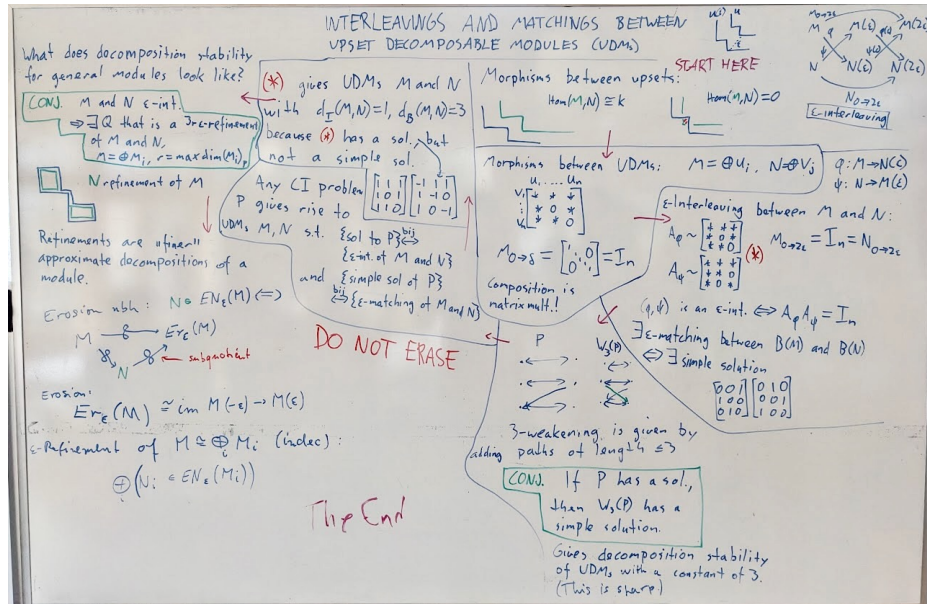 INTERLEAVINGS AND MATCHINGS BETWEEN
UPSET DECOMPOSABLE MODULES (UDMs)
START HERE
M₀→₂ε
M φ M(ε) M(2ε)
N N(ε) N(2ε)
N₀→₂ε
ε-interleaving
Morphisms between upsets:
Hom(M,N) ≅ k
Hom(M,N) = 0
Morphisms between UDMs: M = ⊕Uᵢ, N = ⊕Vⱼ
φ: M→N(ε)
ψ: N→M(ε)
U₁ ... Uₙ
M₀→δ = [1 0 ⋱ 0 1] = Iₙ
Composition is
matrix mult.!!
ε-Interleaving between M and N:
Aφ ~ [* * * * 0 * * * 0]
Aψ ~ [* * * * * 0 * * 0]
(*)
M₀→₂ε = Iₙ = N₀→₂ε
(φ,ψ) is an ε-int. ⇔ AφAψ = Iₙ
∃ε-matching between B(M) and B(N)
⇔ ∃ simple solution
[0 0 1 1 0 0 0 1 0] [0 1 0 0 0 1 1 0 0]
(*) gives UDMs M and N
with d_I(M,N)=1, d_B(M,N)=3
because (*) has a sol., but
not a simple sol.
Any CI problem
P gives rise to
UDMs M, N s.t.
[1 1 1 1 0 1 1 1 0] [-1 1 1 1 -1 0 1 0 -1]
{sol to P} ⇔ bij
{ε-int. of M and N}
and {simple sol of P}
bij ⇔ {ε-matching of M and N}
DO NOT ERASE
P W₃(P)
3-weakening is given by
adding paths of length ≤3
CONJ. If P has a sol.,
then W₃(P) has a
simple solution.
Gives decomposition stability
of UDMs with a constant of 3.
(This is sharp)
What does decomposition stability
for general modules look like?
CONJ. M and N ε-int.
⇒ ∃ Q that is a 3rε-refinement
of M and N,
M = ⊕Mᵢ, r = max dim(Mᵢ)ₚ
N refinement of M
Refinements are "finer"
approximate decompositions of a
module.
Erosion nbh: N ∈ EN_ε(M) ⇔
M Er_ε(M)
N subquotient
Erosion:
Er_ε(M) ≅ im M(-ε) → M(ε)
ε-Refinement of M ≅ ⊕ᵢ Mᵢ (indec):
⊕ᵢ (Nᵢ ∈ EN_ε(Mᵢ))
The End